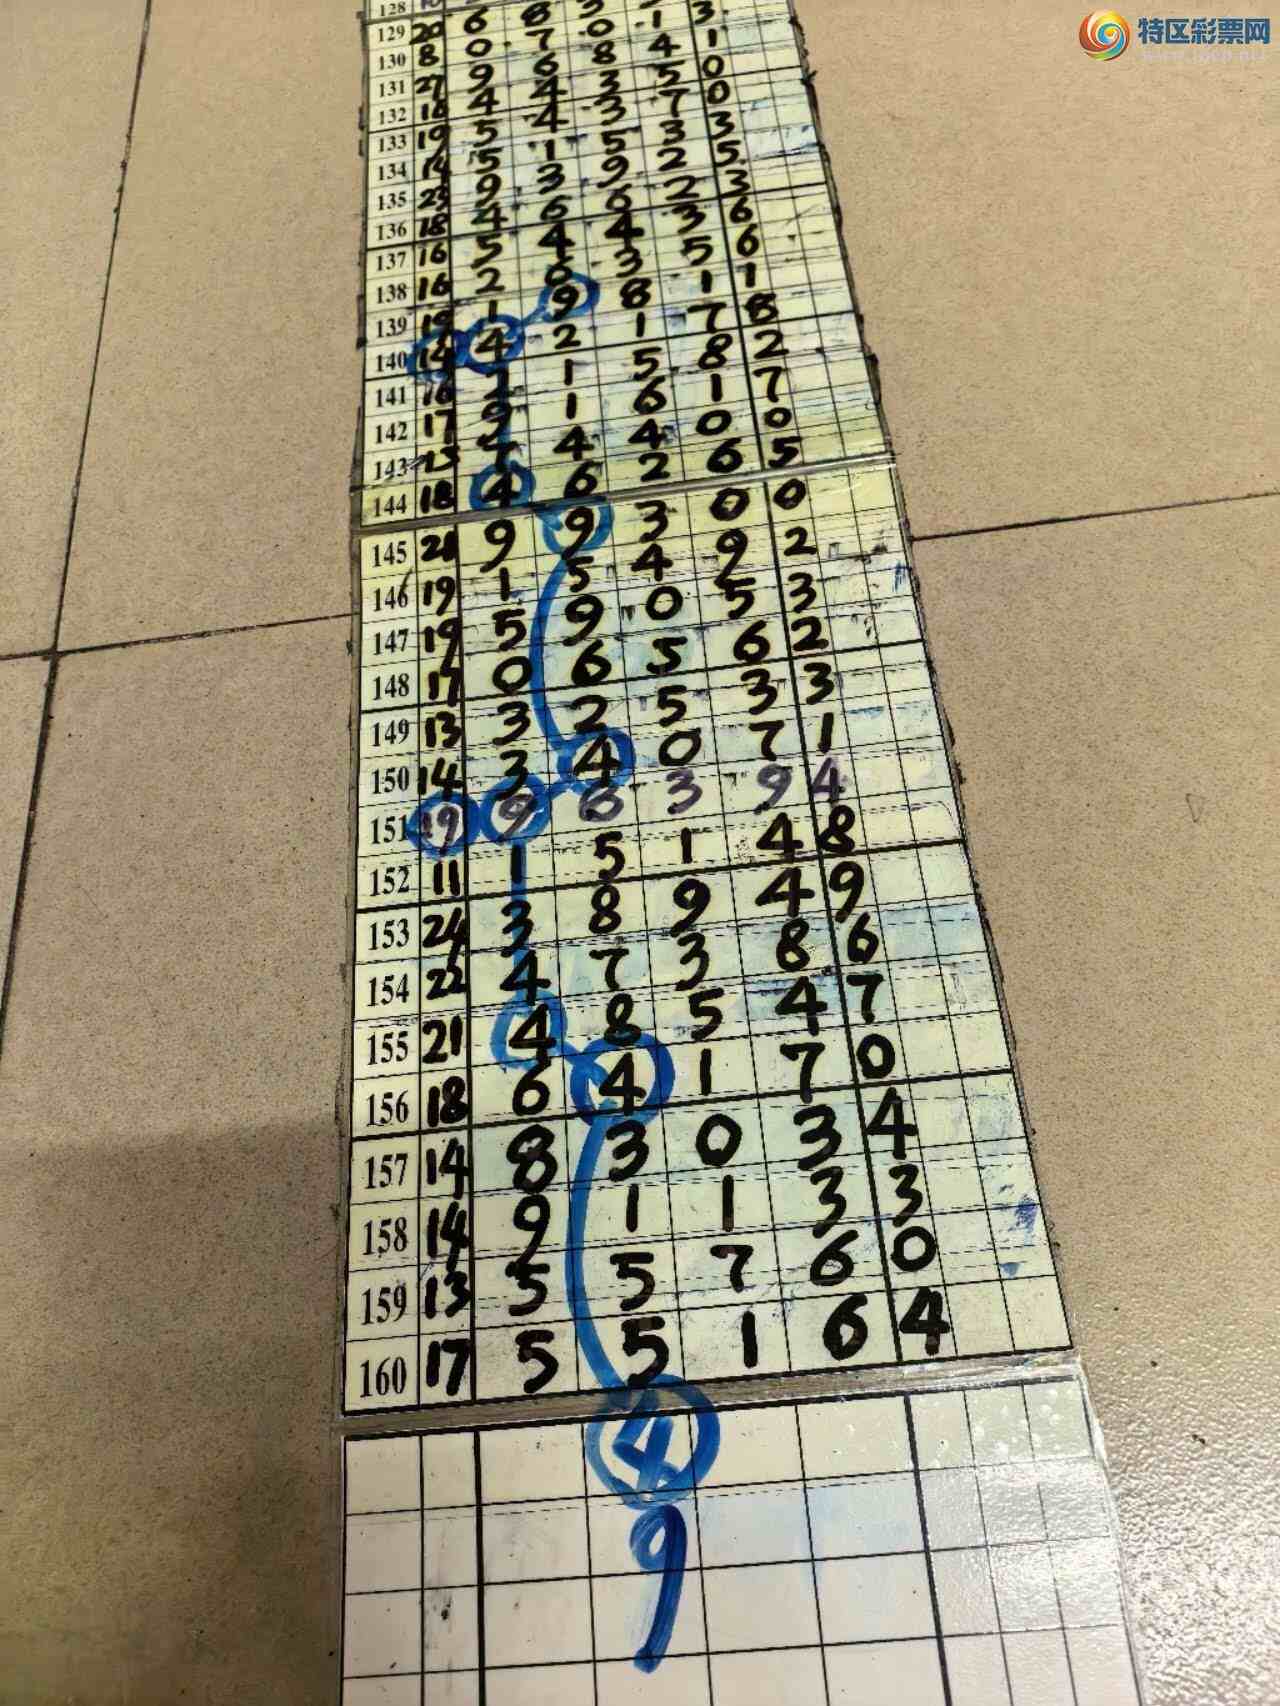 特区彩票网
128
129 20 6 8 3 1 3
130 8 0 7 0 4 1
131 27 9 6 8 5 0
132 18 4 4 3 7 0
133 19 5 4 3 3 3
134 14 5 1 5 2 5
135 23 9 3 9 2 3
136 18 4 6 6 3 6
137 16 5 4 4 5 6
138 16 2 6 3 1 1
139 19 1 9 8 7 8
140 14 4 2 1 8 2
141 16 1 5 1 7
142 17 1 6 0 0
143 15 7 4 4 6 5
144 18 4 6 2 0 0
145 21 9 9 3 9 2
146 19 1 5 4 5 3
147 19 5 9 0 6 2
148 17 0 6 5 3 3
149 13 3 2 5 7 1
150 14 3 4 0 9 4
151 19 9 6 3 4 8
152 11 1 5 1 4 9
153 24 3 8 9 8 6
154 22 4 7 3 4 7
155 21 4 8 5 7 0
156 18 6 4 1 3 4
157 14 8 3 0 3 3
158 14 9 1 1 6 0
159 13 5 5 7 6 4
160 17 5 5 1
4
9